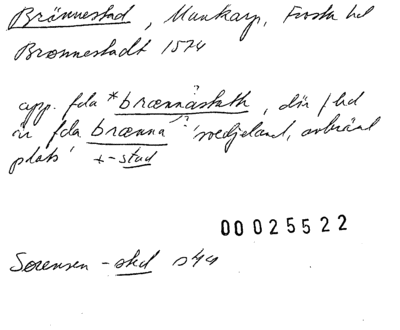 Brännestad, Munkarp, Frosta hd
Brænnestadt 1574
upp. fda *brænnastath, där f.led
är fda brænna ? 'svedjeland, avbränd
plats' + -stad
00025522
Sørensen -sted s 44